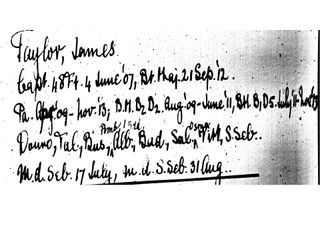 Taylor, James.
Capt. 48th. 4 June '07, Bt. Maj. 21 Sep. '12.
Pa. Apr '09 - Nov. '13; B.M. B, D2. Aug '09 - June '11, B.M. B, D5. July '11 -
Douro, Tal, Bus, Alb, Bud, Sal, Vit, S. Seb.
M.d. Seb. 17 July, m.d. S. Seb. 31 Aug.